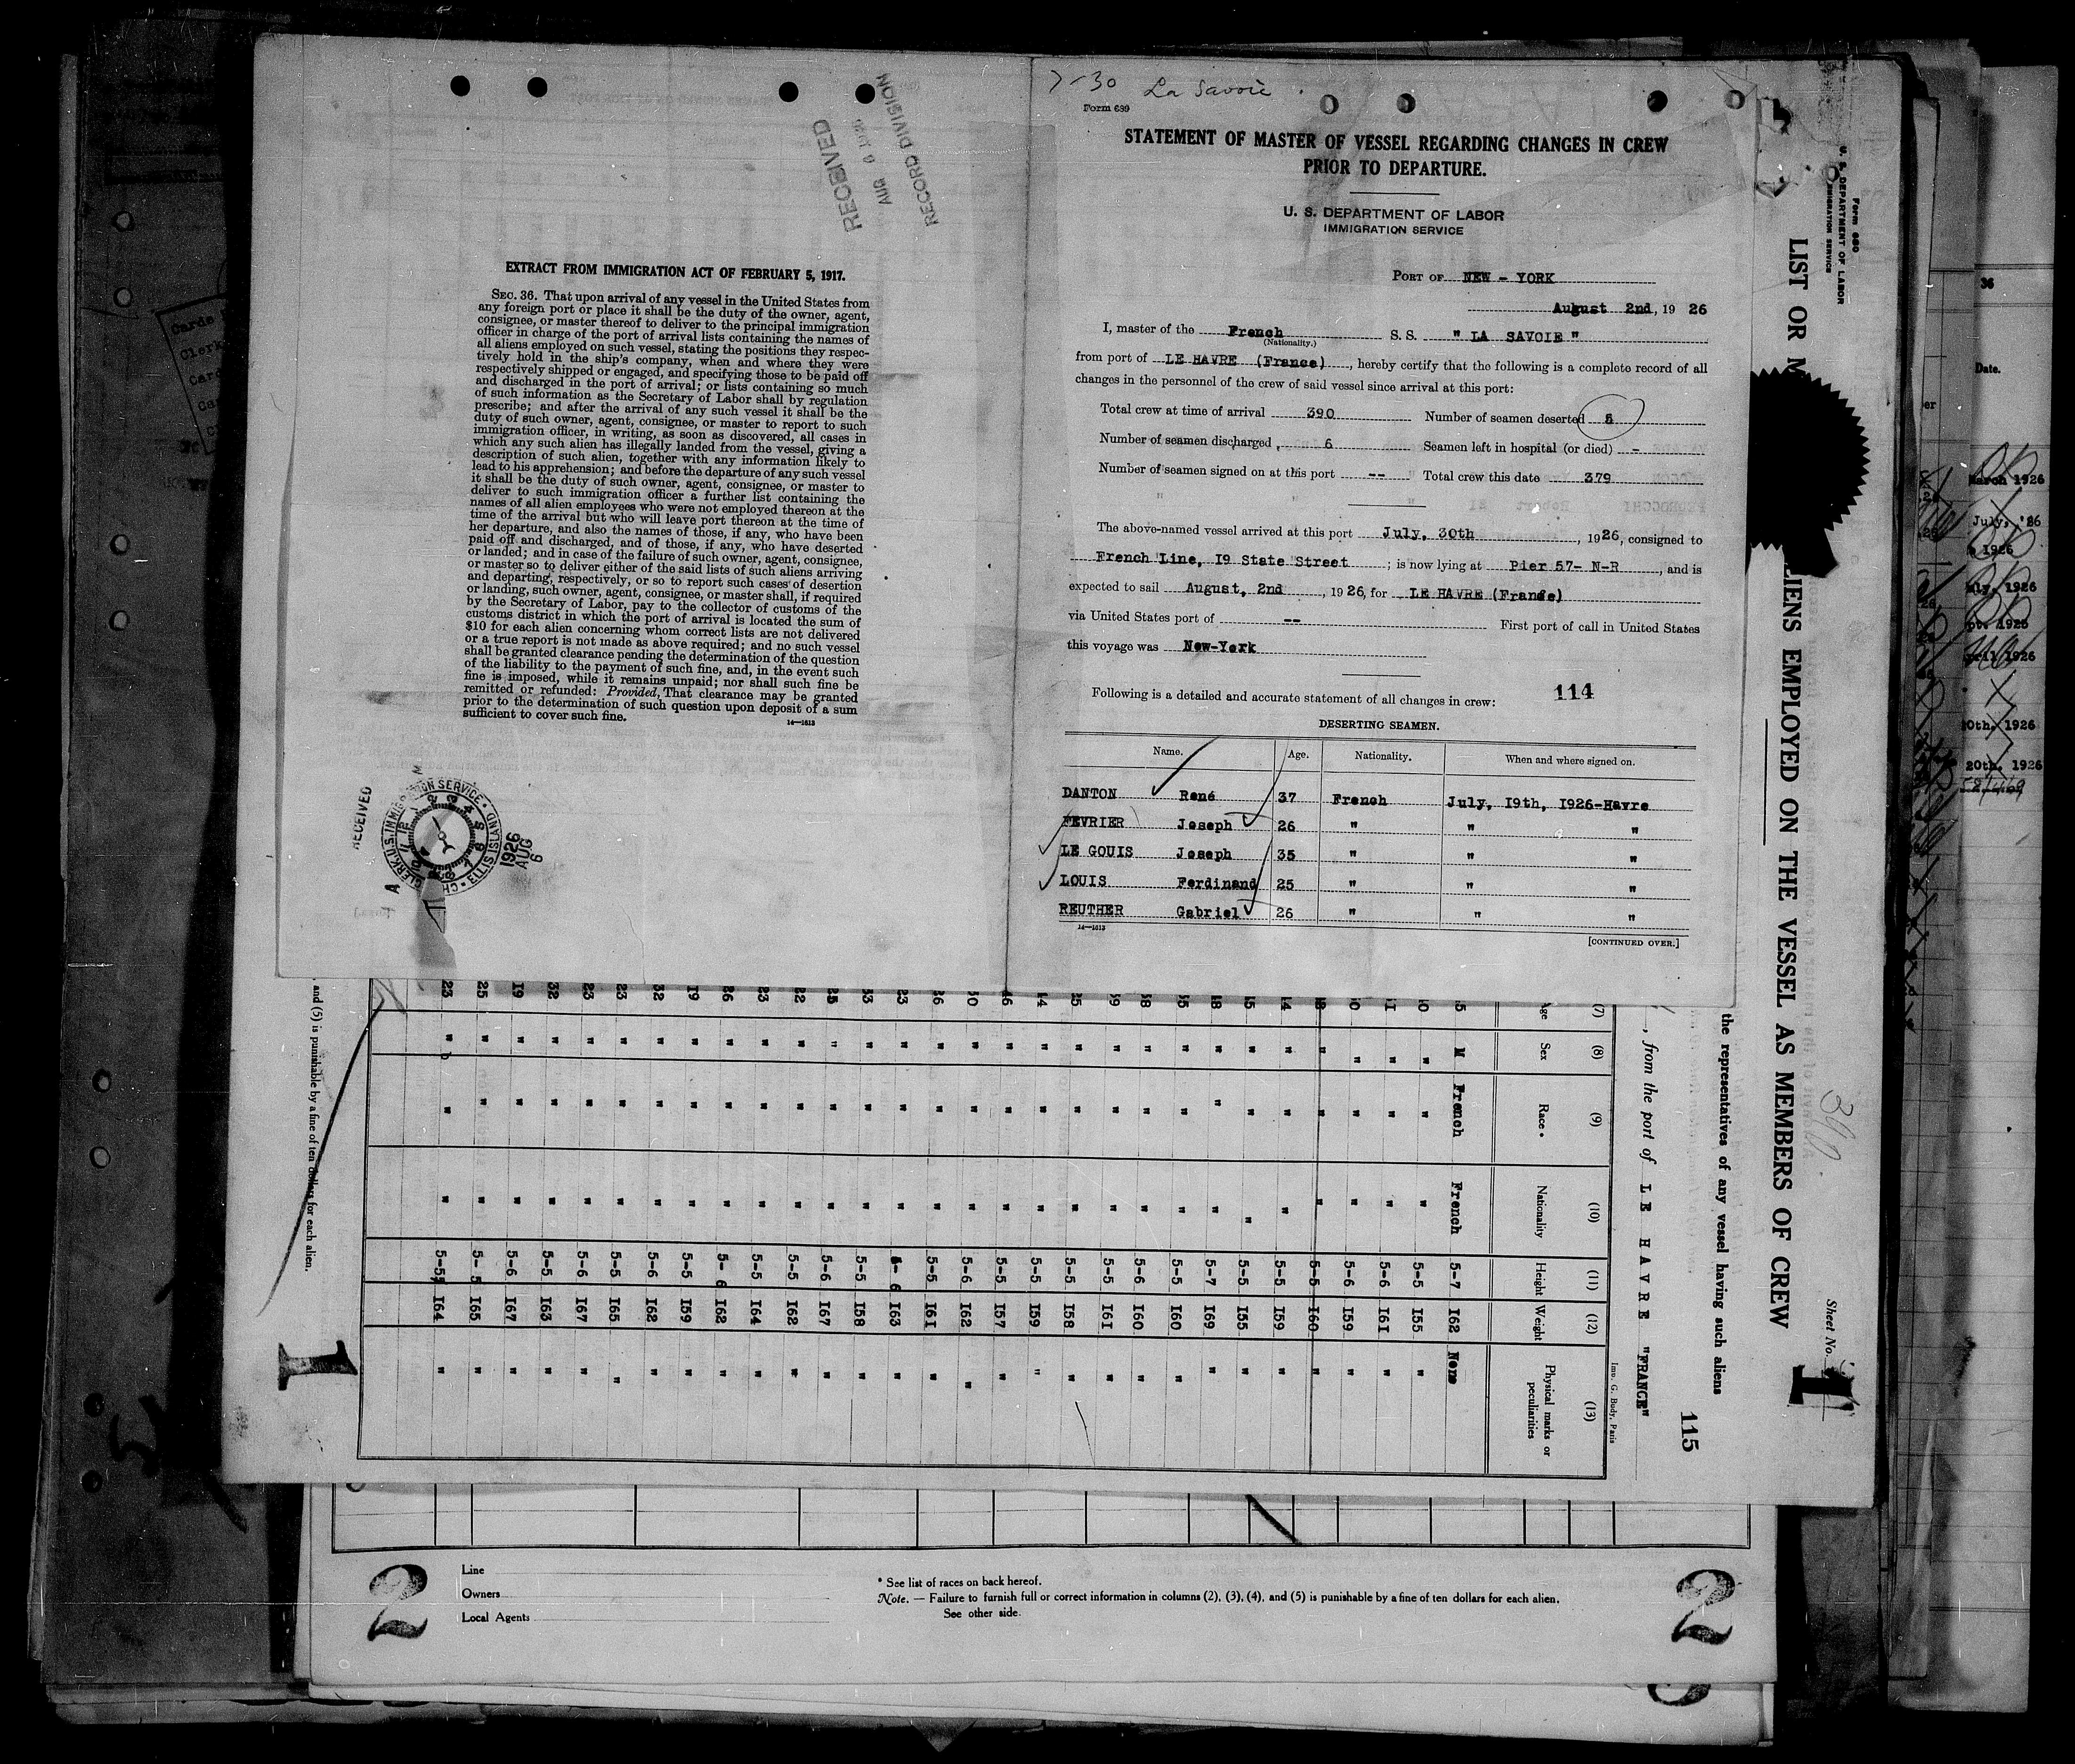 RECEIVED
AUG 6 1926
RECORD DIVISION
EXTRACT FROM IMMIGRATION ACT OF FEBRUARY 5, 1917.
SEC. 36. That upon arrival of any vessel in the United States from
any foreign port or place it shall be the duty of the owner, agent,
consignee, or master thereof to deliver to the principal immigration
officer in charge of the port of arrival lists containing the names of
all aliens employed on such vessel, stating the positions they respec-
tively hold in the ship's company, when and where they were
respectively shipped or engaged, and specifying those to be paid off
and discharged in the port of arrival; or lists containing so much
of such information as the Secretary of Labor shall by regulation
prescribe; and after the arrival of any such vessel it shall be the
duty of such owner, agent, consignee, or master to report to such
immigration officer, in writing, as soon as discovered, all cases in
which any such alien has illegally landed from the vessel, giving a
description of such alien, together with any information likely to
lead to his apprehension; and before the departure of any such vessel
it shall be the duty of such owner, agent, consignee, or master to
deliver to such immigration officer a further list containing the
names of all alien employees who were not employed thereon at the
time of the arrival but who will leave port thereon at the time of
her departure, and also the names of those, if any, who have been
paid off and discharged, and of those, if any, who have deserted
or landed; and in case of the failure of such owner, agent, consignee,
or master so to deliver either of the said lists of such aliens arriving
and departing, respectively, or so to report such cases of desertion
or landing, such owner, agent, consignee, or master shall, if required
by the Secretary of Labor, pay to the collector of customs of the
customs district in which the port of arrival is located the sum of
$10 for each alien concerning whom correct lists are not delivered
or a true report is not made as above required; and no such vessel
shall be granted clearance pending the determination of the question
of the liability to the payment of such fine, and, in the event such
fine is imposed, while it remains unpaid; nor shall such fine be
remitted or refunded: Provided, That clearance may be granted
prior to the determination of such question upon deposit of a sum
sufficient to cover such fine.
14—1613
RECEIVED
1926 AUG 6
7-30 La Savoie
Form 689
STATEMENT OF MASTER OF VESSEL REGARDING CHANGES IN CREW
PRIOR TO DEPARTURE.
U. S. DEPARTMENT OF LABOR
IMMIGRATION SERVICE
PORT OF NEW - YORK
August 2nd, 19 26
I, master of the French S. S. " LA SAVOIE "
(Nationality.)
from port of LE HAVRE (France), hereby certify that the following is a complete record of all
changes in the personnel of the crew of said vessel since arrival at this port:
Total crew at time of arrival 390 Number of seamen deserted 5
Number of seamen discharged 6 Seamen left in hospital (or died) -
Number of seamen signed on at this port -- Total crew this date 379
The above-named vessel arrived at this port July, 30th, 1926, consigned to
French Line, I9 State Street; is now lying at Pier 57- N-R, and is
expected to sail August, 2nd, 1926, for LE HAVRE (France)
via United States port of -- First port of call in United States
this voyage was New-York
Following is a detailed and accurate statement of all changes in crew: 114
DESERTING SEAMEN.
Name. Age. Nationality. When and where signed on.
DANTON René 37 French July, I9th, I926-Havre
FEVRIER Joseph 26 " " "
LE GOUIS Joseph 35 " " "
LOUIS Ferdinand 25 " " "
REUTHER Gabriel 26 " " "
14—1613
[CONTINUED OVER.]
Form 680
U. S. DEPARTMENT OF LABOR
IMMIGRATION SERVICE
LIST OR M
LIENS EMPLOYED ON THE VESSEL AS MEMBERS OF CREW
390
Sheet No. 1
the representatives of any vessel having such aliens
115
, from the port of LE HAVRE "FRANCE"
Imp. G. Budy, Paris
(7) (8) (9) (10) (11) (12) (13)
Age Sex Race * Nationality Height Weight Physical marks or peculiarities
5 M French French 5-7 I62 None
0 " " " 5-5 I55 "
I " " " 5-6 I6I "
0 " " " 5-6 I59 "
" " " 5-5 I60 "
4 " " " 5-5 I59 "
5 " " " 5-5 I55 "
8 " " " 5-7 I69 "
5 " " " 5-5 I60 "
8 " " " 5-6 I60 "
9 " " " 5-5 I6I "
5 " " " 5-5 I58 "
4 " " " 5-5 I59 "
6 " " " 5-5 I57 "
0 " " " 5-6 I62 "
6 " " " 5-5 I6I "
23 " " " 6 I63 "
33 " " " 5-5 I58 "
25 " " " 5-6 I67 "
22 " " " 5-5 I62 "
23 " " " 5-5 I64 "
26 " " " 5- 6 I62 "
I9 " " " 5-5 I59 "
32 " " " 5-6 I62 "
23 " " " 5-5 I65 "
23 " " " 5-6 I67 "
32 " " " 5-5 I63 "
I9 " " " 5-6 I67 "
25 " " " 5- 5 I65 "
23 " " " 5-5 I64 "
and (5) is punishable by a fine of ten dollars for each alien.
1
2
Line
Owners
Local Agents
* See list of races on back hereof.
Note. — Failure to furnish full or correct information in columns (2), (3), (4), and (5) is punishable by a fine of ten dollars for each alien.
See other side.
2
36
Date.
March 1926
July, '26
1926
1926
1926
April 1926
20th, 1926
20th, 1926